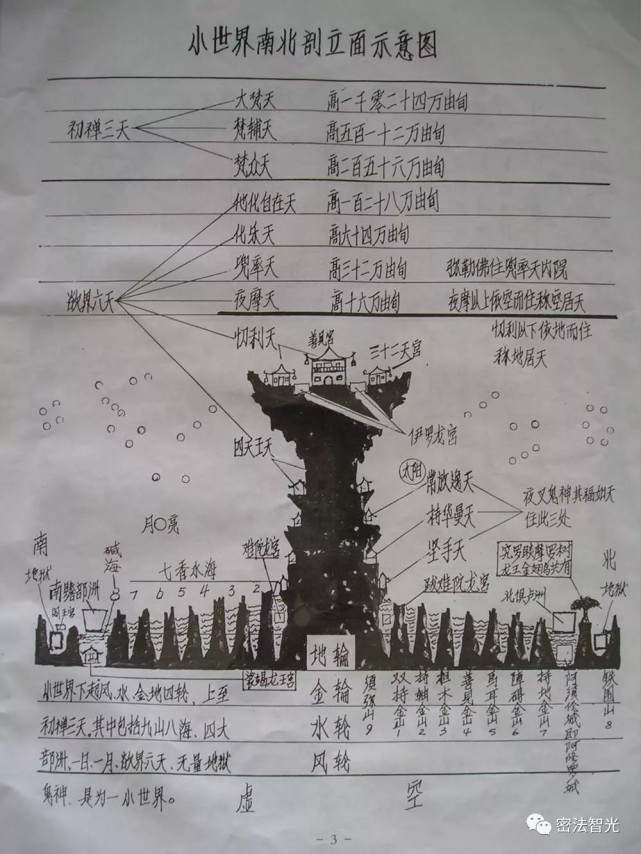 小世界南北剖立面示意图
大梵天 高一千零二十四万由旬
初禅三天 梵辅天 高五百一十二万由旬
梵众天 高二百五十六万由旬
他化自在天 高一百二十八万由旬
化乐天 高六十四万由旬
兜率天 高三十二万由旬 弥勒佛住兜率天内院
欲界六天 夜摩天 高十六万由旬 夜摩以上依空而住称空居天
忉利天 善见宫 三十二天宫
忉利以下依地而住
称地居天
伊罗龙宫
四天王天
太阳 常放逸天
持华曼天
坚手天
夜叉鬼神其福如天
住此三处
月
南
地狱
南赡部洲
阎王宫
碱海
七香水海
8 7 6 5 4 3 2
难陀龙宫
跋难陀龙宫
北俱卢洲
北
地狱
娑竭龙王宫
地轮
金轮
水轮
风轮
须弥山9
双持金山1
持轴金山2
担木金山3
善见金山4
马耳金山5
障碍金山6
持地金山7
阿须伦城即阿修罗城
铁围山8
小世界下起风、水、金、地四轮，上至
初禅三天。其中包括九山八海、四大
部洲、一日、一月、欲界六天、无量地狱
鬼神、是为一小世界。
虚 空
- 3 -
密法智光